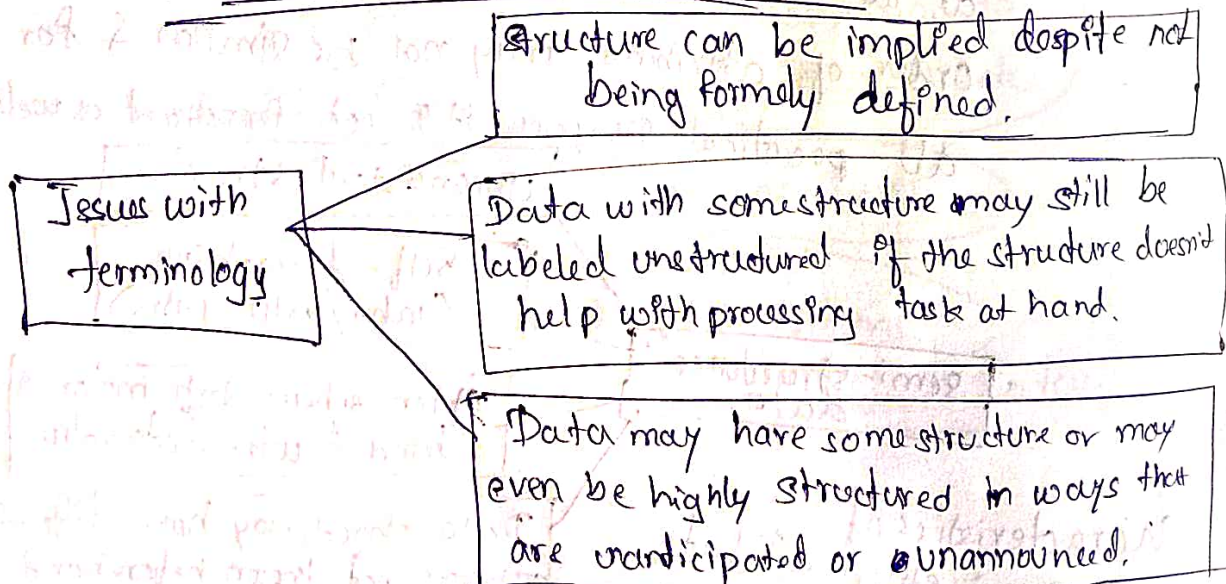 structure can be implied despite not
being formely defined.
Issues with
terminology
Data with somestructure may still be
labeled unstructured if the structure doesn't
help with processing task at hand.
Data may have some structure or may
even be highly structured in ways that
are unanticipated or unannounced.